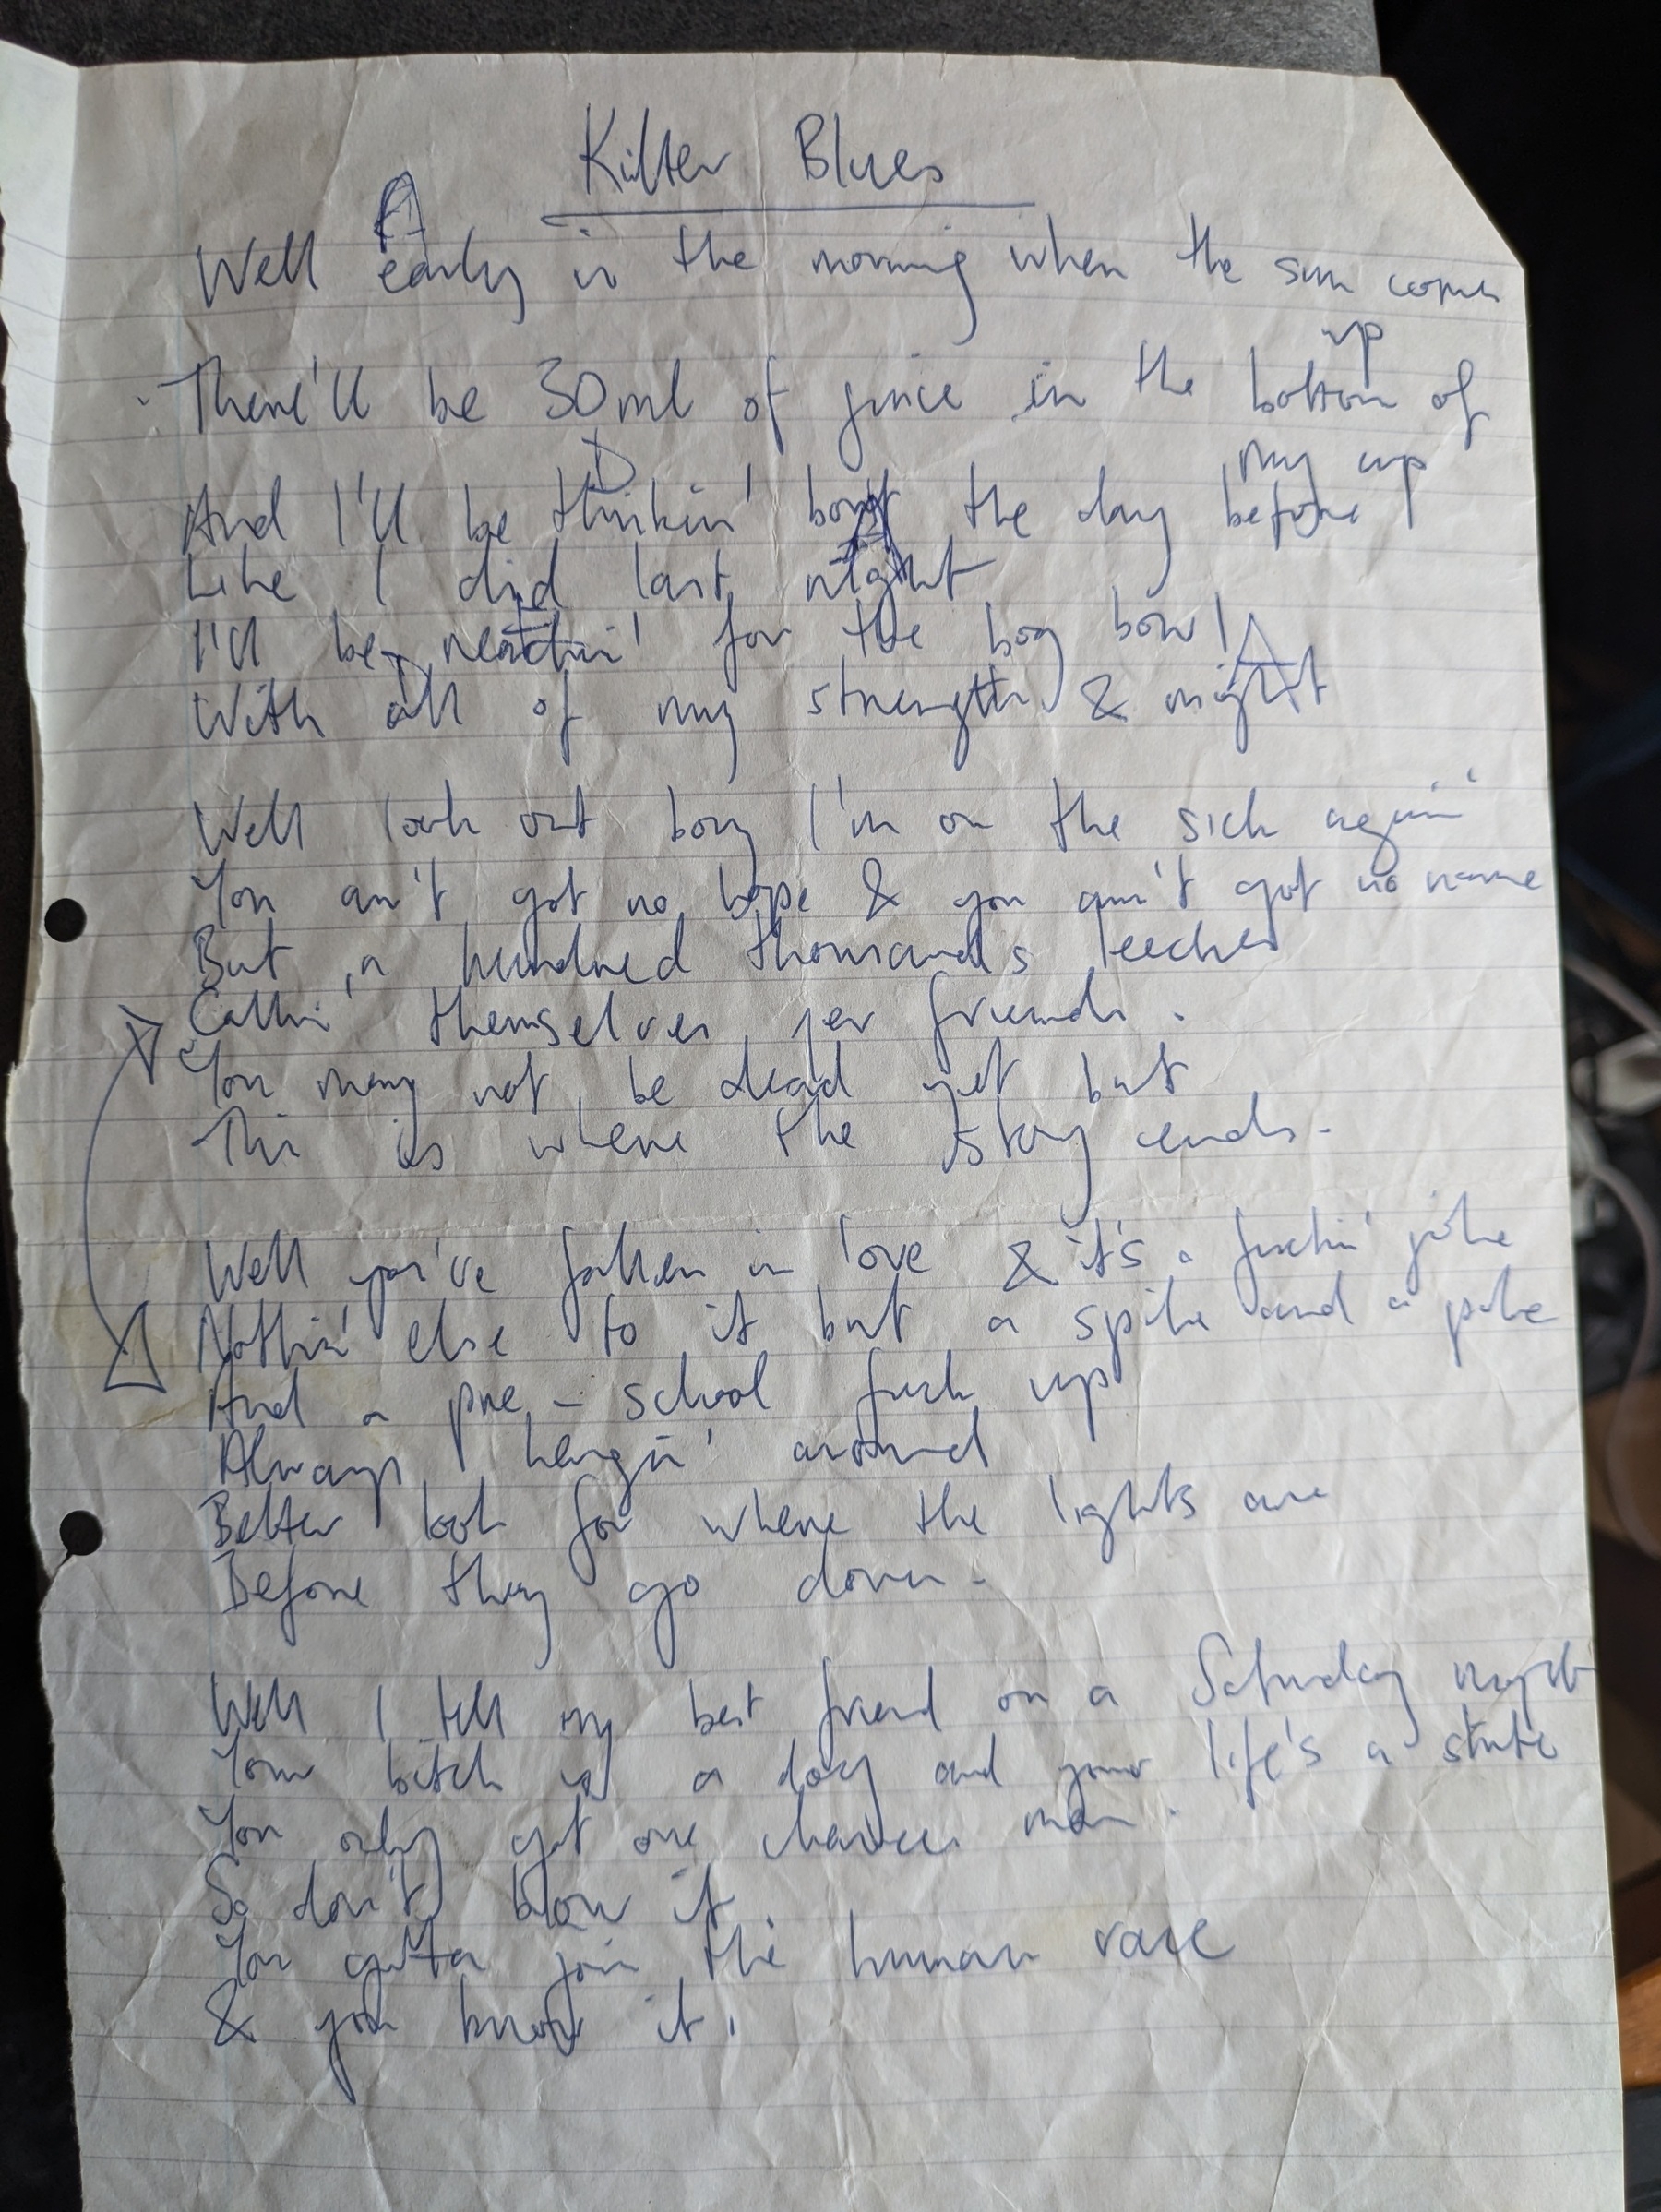 Kilter Blues
A
Well early in the morning when the sun comes
up
There'll be 30ml of juice in the bottom of
my cup
D
And I'll be thinkin' bout the day before
A
Like I did last night
E
I'll be reachin' for the bog bowl
D A
With all of my strength & might
Well look out boy I'm on the sick again'
You ain't got no hope & you ain't got no name
But a hundred thousands leeches
Callin' themselves yer friends.
You may not be dead yet but
This is where the story ends.
Well you've fallen in love & it's a fuckin' joke
Nothin' else to it but a spike and a poke
And a pre-school fuck up
Always hangin' around
Better look for where the lights are
Before they go down.
Well I tell my best friend on a Saturday night
Your bitch is a dog and your life's a
You only get one chance man.
So don't blow it
You gotta join the human race
& you know it.